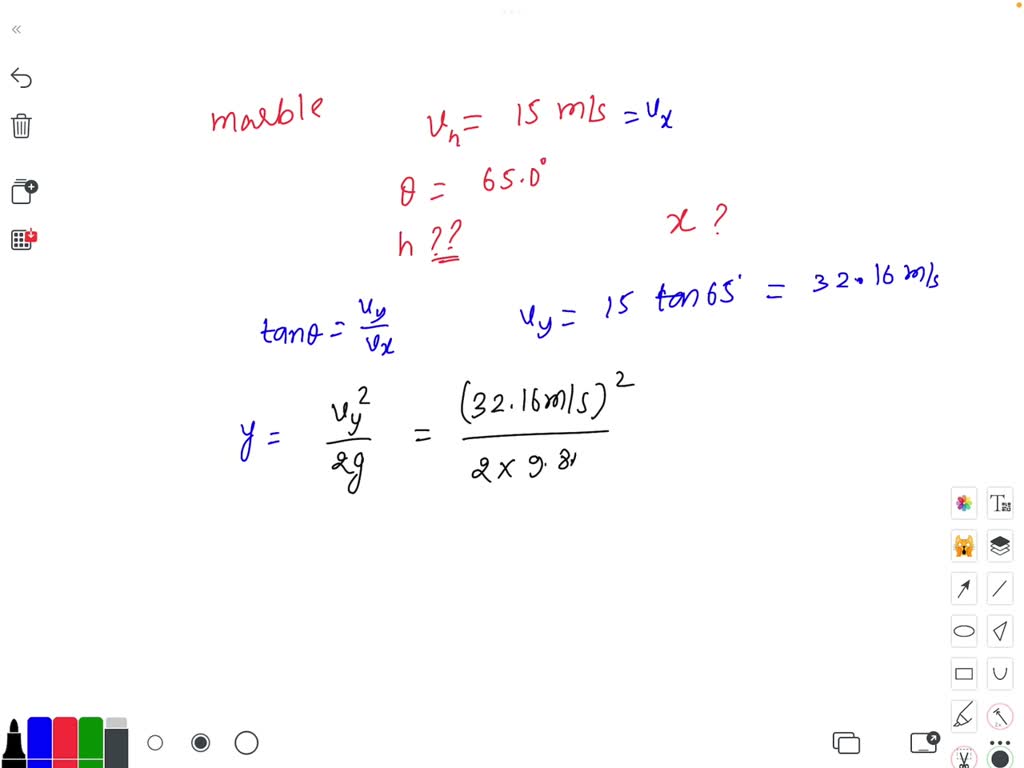 marble v_h = 15 m/s = v_x
θ = 65.0°
h ?? x ?
tanθ = v_y/v_x v_y = 15 tan65° = 32.16 m/s
y = v_y²/2g = (32.16m/s)²/2×9.8